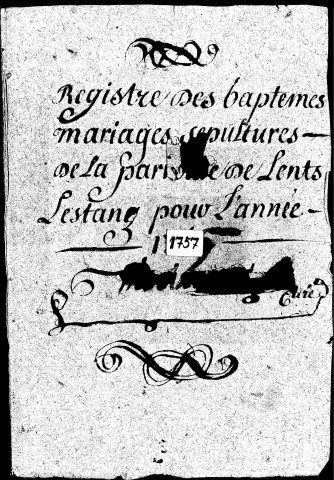 Registre Des baptemes
mariages sepultures —
De La parroisse De Lents
Lestang pour L'année —
1757
Curé